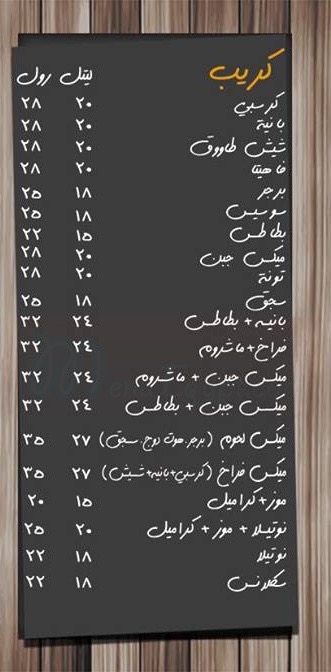 كريب ليتل رول
كرسبي ٢٠ ٢٨
بانية ٢٠ ٢٨
شيش طاووق ٢٠ ٢٨
فاهيتا ٢٠ ٢٨
برجر ١٨ ٢٥
سوسيس ١٨ ٢٥
بطاطس ١٥ ٢٢
ميكس جبن ٢٠ ٢٨
تونة ٢٠ ٢٨
سجق ١٨ ٢٥
بانيه + بطاطس ٢٤ ٣٢
فراخ+ماشروم ٢٤ ٣٢
ميكس جبن + ماشروم ٢٤ ٣٢
ميكس جبن + بطاطس ٢٤ ٣٢
ميكس لحوم (برجر.هوت دوج.سجق) ٢٧ ٣٥
ميكس فراخ (كرسبي+بانيه+شيش) ٢٧ ٣٥
موز+كراميل ١٥ ٢٠
نوتيلا + موز + كراميل ٢٠ ٢٥
نوتيلا ١٨ ٢٢
سكلانس ١٨ ٢٢